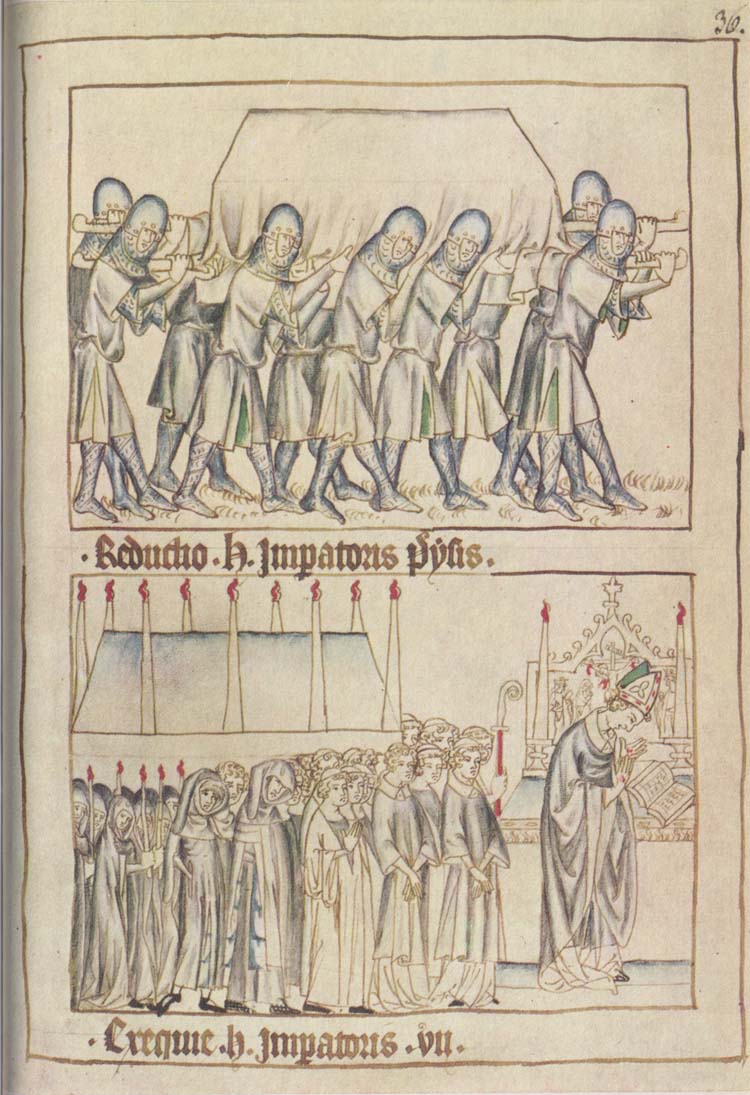 36.
· Reductio · h · Jmpatoris pysis ·
· Exequie · h · Jmpatoris · vii ·